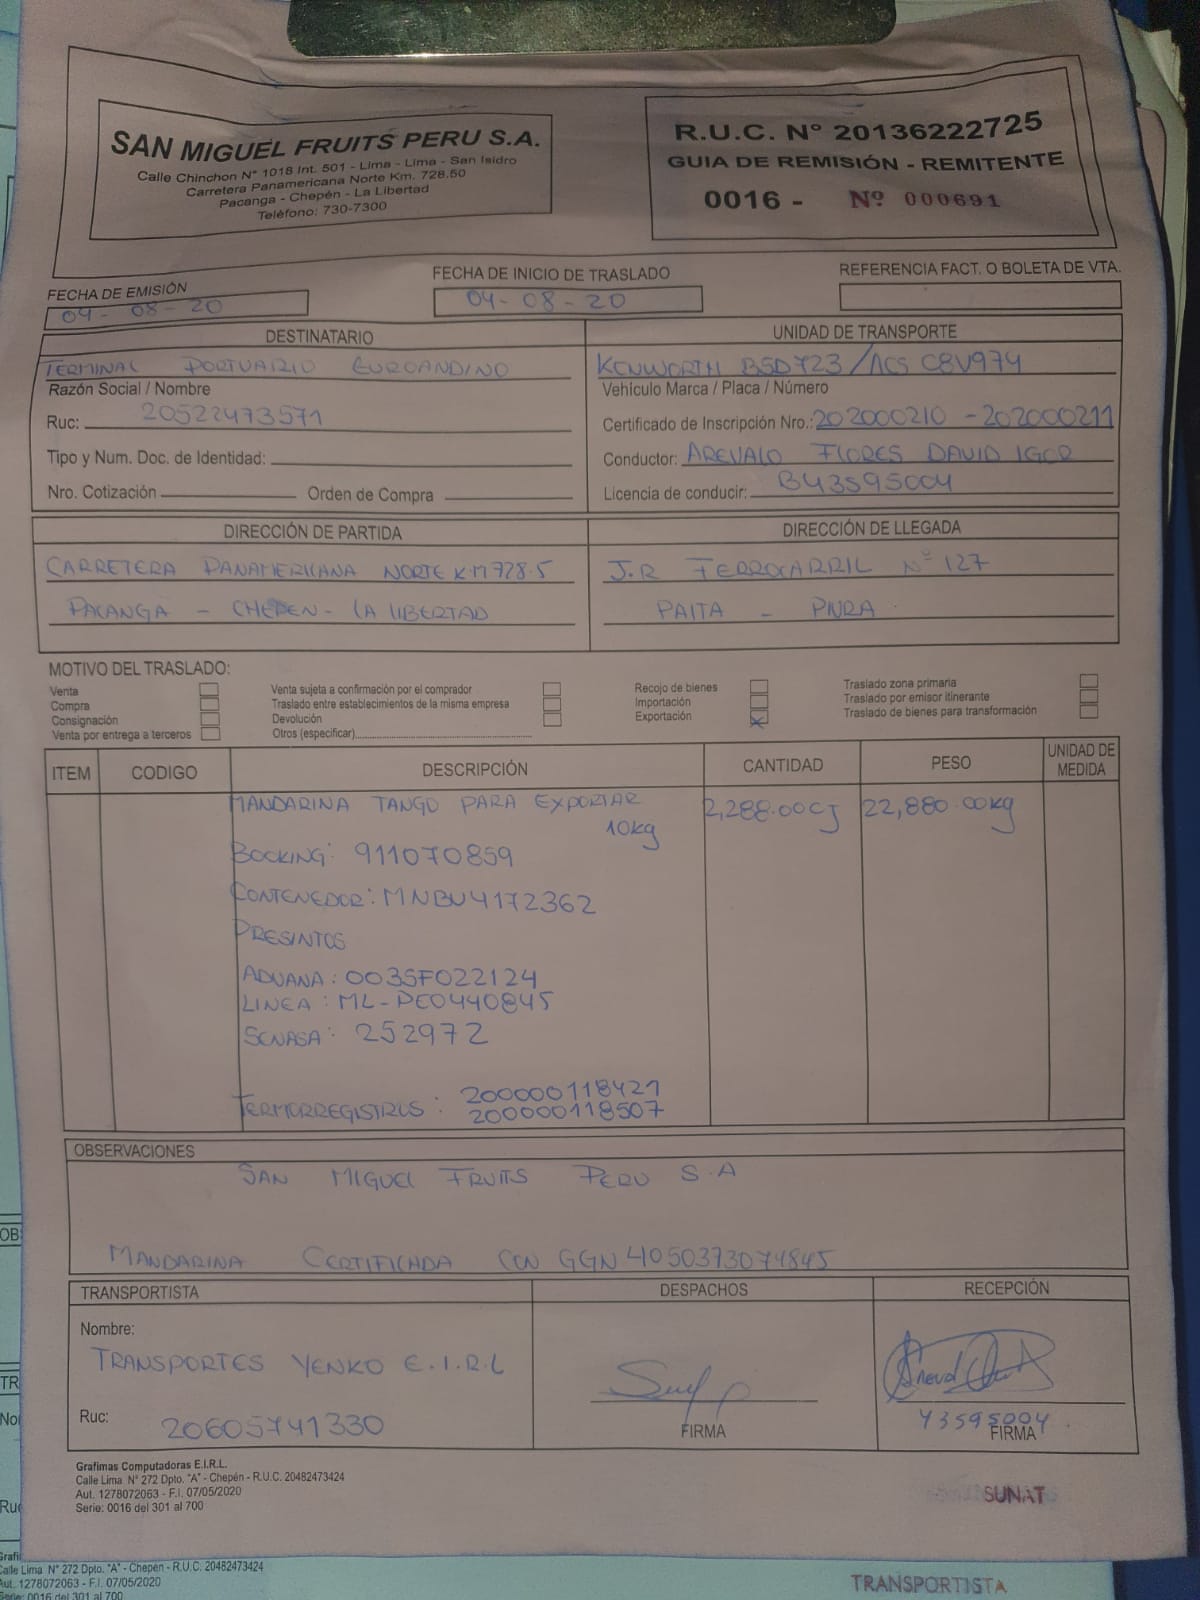 SAN MIGUEL FRUITS PERU S.A.
Calle Chinchon N° 1018 Int. 501 - Lima - Lima - San Isidro
Carretera Panamericana Norte Km. 728.50
Pacanga - Chepén - La Libertad
Teléfono: 730-7300
R.U.C. N° 20136222725
GUIA DE REMISIÓN - REMITENTE
0016 - Nº 000691
FECHA DE EMISIÓN
04- 08 - 20
FECHA DE INICIO DE TRASLADO
04- 08 - 20
REFERENCIA FACT. O BOLETA DE VTA.
DESTINATARIO
TERMINAL PORTUARIO EUROANDINO
Razón Social / Nombre
Ruc: 20522473571
Tipo y Num. Doc. de Identidad:
Nro. Cotización Orden de Compra
UNIDAD DE TRANSPORTE
KENWORTH B5D723/ACS C8V974
Vehículo Marca / Placa / Número
Certificado de Inscripción Nro.: 202000210 - 202000211
Conductor: AREVALO FLORES DAVID IGOR
Licencia de conducir: B43595004
DIRECCIÓN DE PARTIDA
CARRETERA PANAMERICANA NORTE K.M 728.5
PACANGA - CHEPEN - LA LIBERTAD
DIRECCIÓN DE LLEGADA
J.R FERROCARRIL N° 127
PAITA - PIURA
MOTIVO DEL TRASLADO:
Venta
Compra
Consignación
Venta por entrega a terceros
Venta sujeta a confirmación por el comprador
Traslado entre establecimientos de la misma empresa
Devolución
Otros (especificar)
Recojo de bienes
Importación
Exportación X
Traslado zona primaria
Traslado por emisor itinerante
Traslado de bienes para transformación
ITEM CODIGO DESCRIPCIÓN CANTIDAD PESO UNIDAD DE MEDIDA
MANDARINA TANGO PARA EXPORTAR 2,288.00CJ 22,880.00kg
10kg
BOCKING: 911070859
CONTENEDOR: MNBU4172362
PRESINTOS
ADUANA: 0035F022124
LINEA: ML-PE0440845
SENASA: 252972
TERMORREGISTROS: 200000118421
200000118507
OBSERVACIONES
SAN MIGUEL FRUITS PERU S.A
MANDARINA CERTIFICADA CON GGN 4050373074845
TRANSPORTISTA
Nombre:
TRANSPORTES YENKO E.I.R.L
Ruc: 20605741330
DESPACHOS
FIRMA
RECEPCIÓN
43595004
FIRMA
Grafimas Computadoras E.I.R.L.
Calle Lima N° 272 Dpto. "A" - Chepén - R.U.C. 20482473424
Aut. 1278072063 - F.I. 07/05/2020
Serie: 0016 del 301 al 700
SUNAT
Calle Lima N° 272 Dpto. "A" - Chepén - R.U.C. 20482473424
Aut. 1278072063 - F.I. 07/05/2020
Serie: 0016 del 301 al 700
TRANSPORTISTA